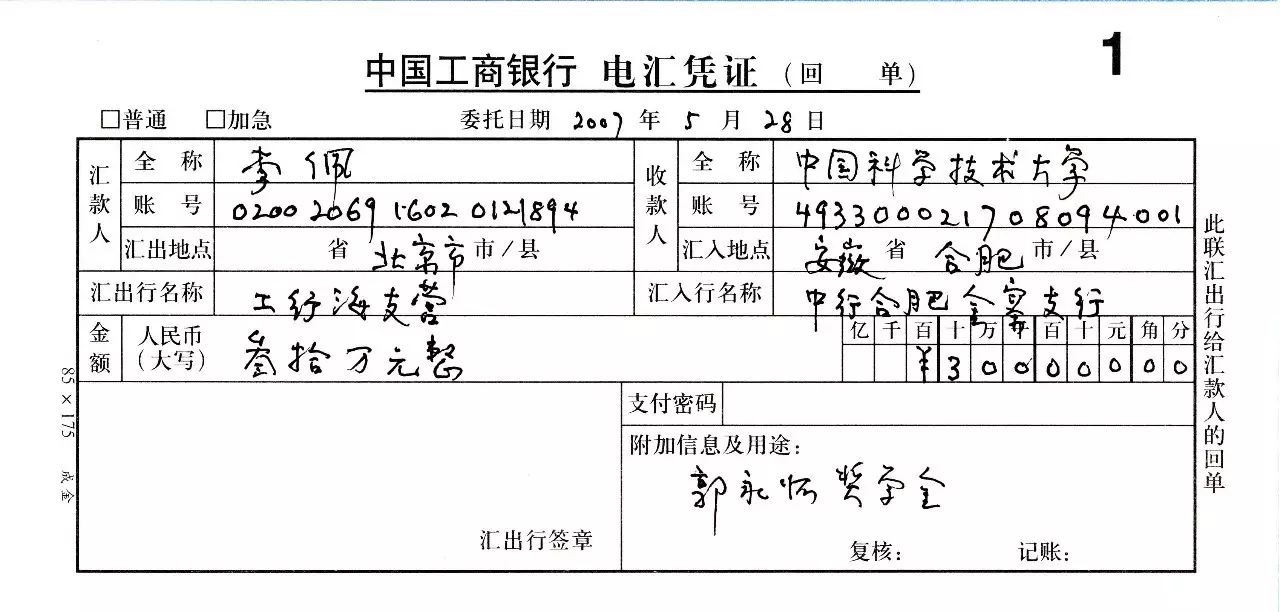 1
中国工商银行 电汇凭证 (回 单)
□普通 □加急 委托日期 2007 年 5 月 28 日
汇款人 全 称 李佩 收款人 全 称 中国科学技术大学
账 号 0200 2069 1602 0121894 账 号 493300021708094001
汇出地点 省 北京市 市/县 汇入地点 安徽 省 合肥 市/县
汇出行名称 工行海支营 汇入行名称 中行合肥金寨支行
金额 人民币(大写) 叁拾万元整 亿 千 百 十 万 千 百 十 元 角 分
¥ 3 0 0 0 0 0 0 0
支付密码
附加信息及用途:
郭永怀奖学金
汇出行签章
复核: 记账:
此联汇出行给汇款人的回单
85×175 成金